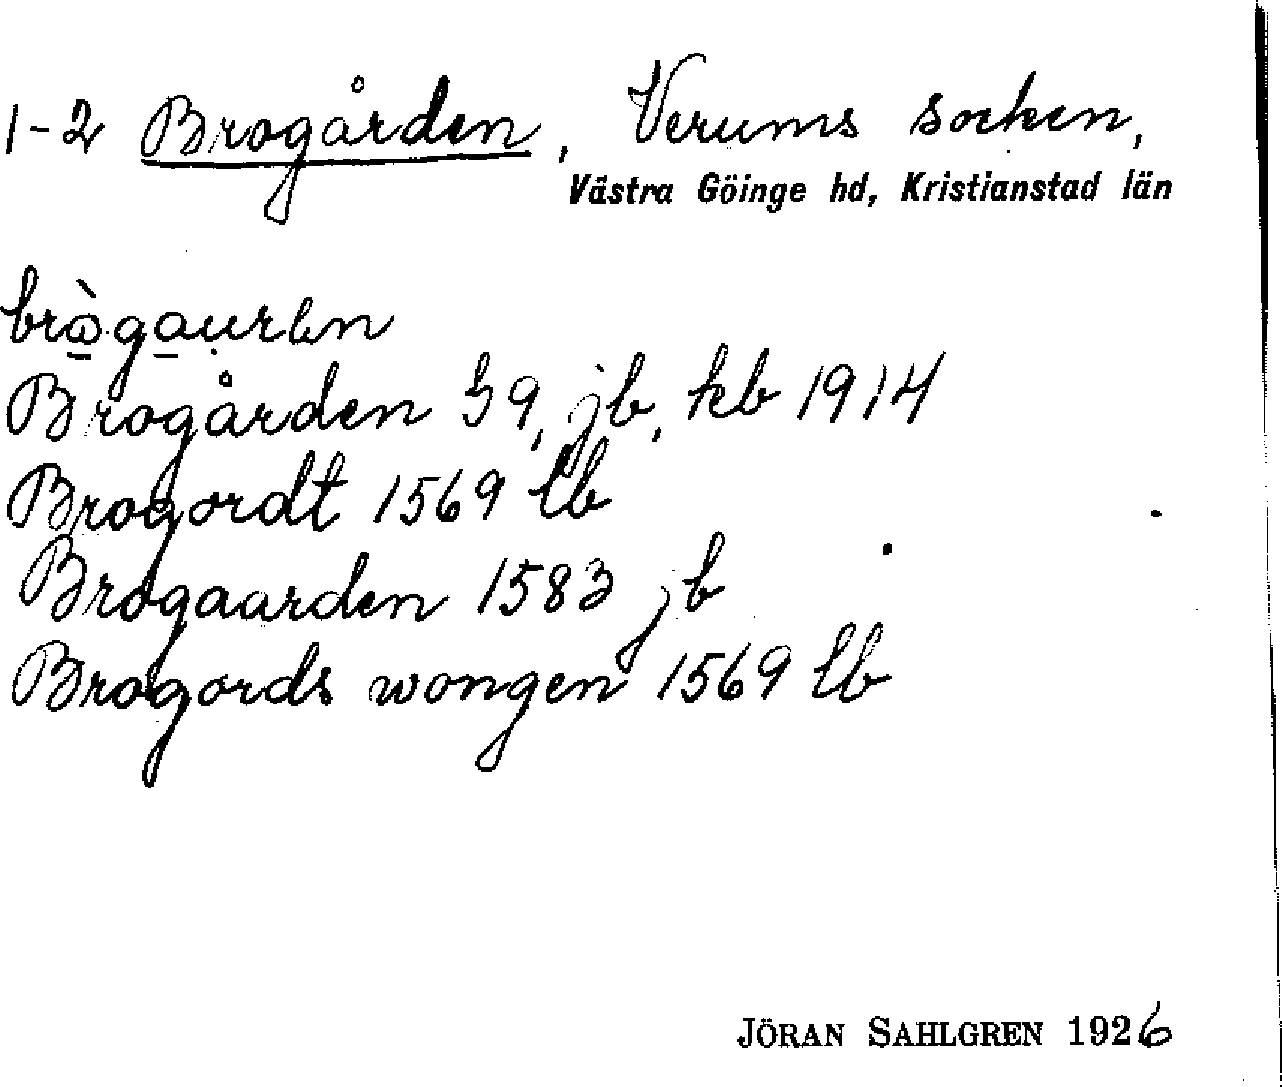 1-2 Brogården, Verums socken,
Västra Göinge hd, Kristianstad län
Brogården G9, jb, kb 1914
Brogordt 1569 lb
Brogaarden 1583 jb
Brogords wongen 1569 lb
JÖRAN SAHLGREN 1926